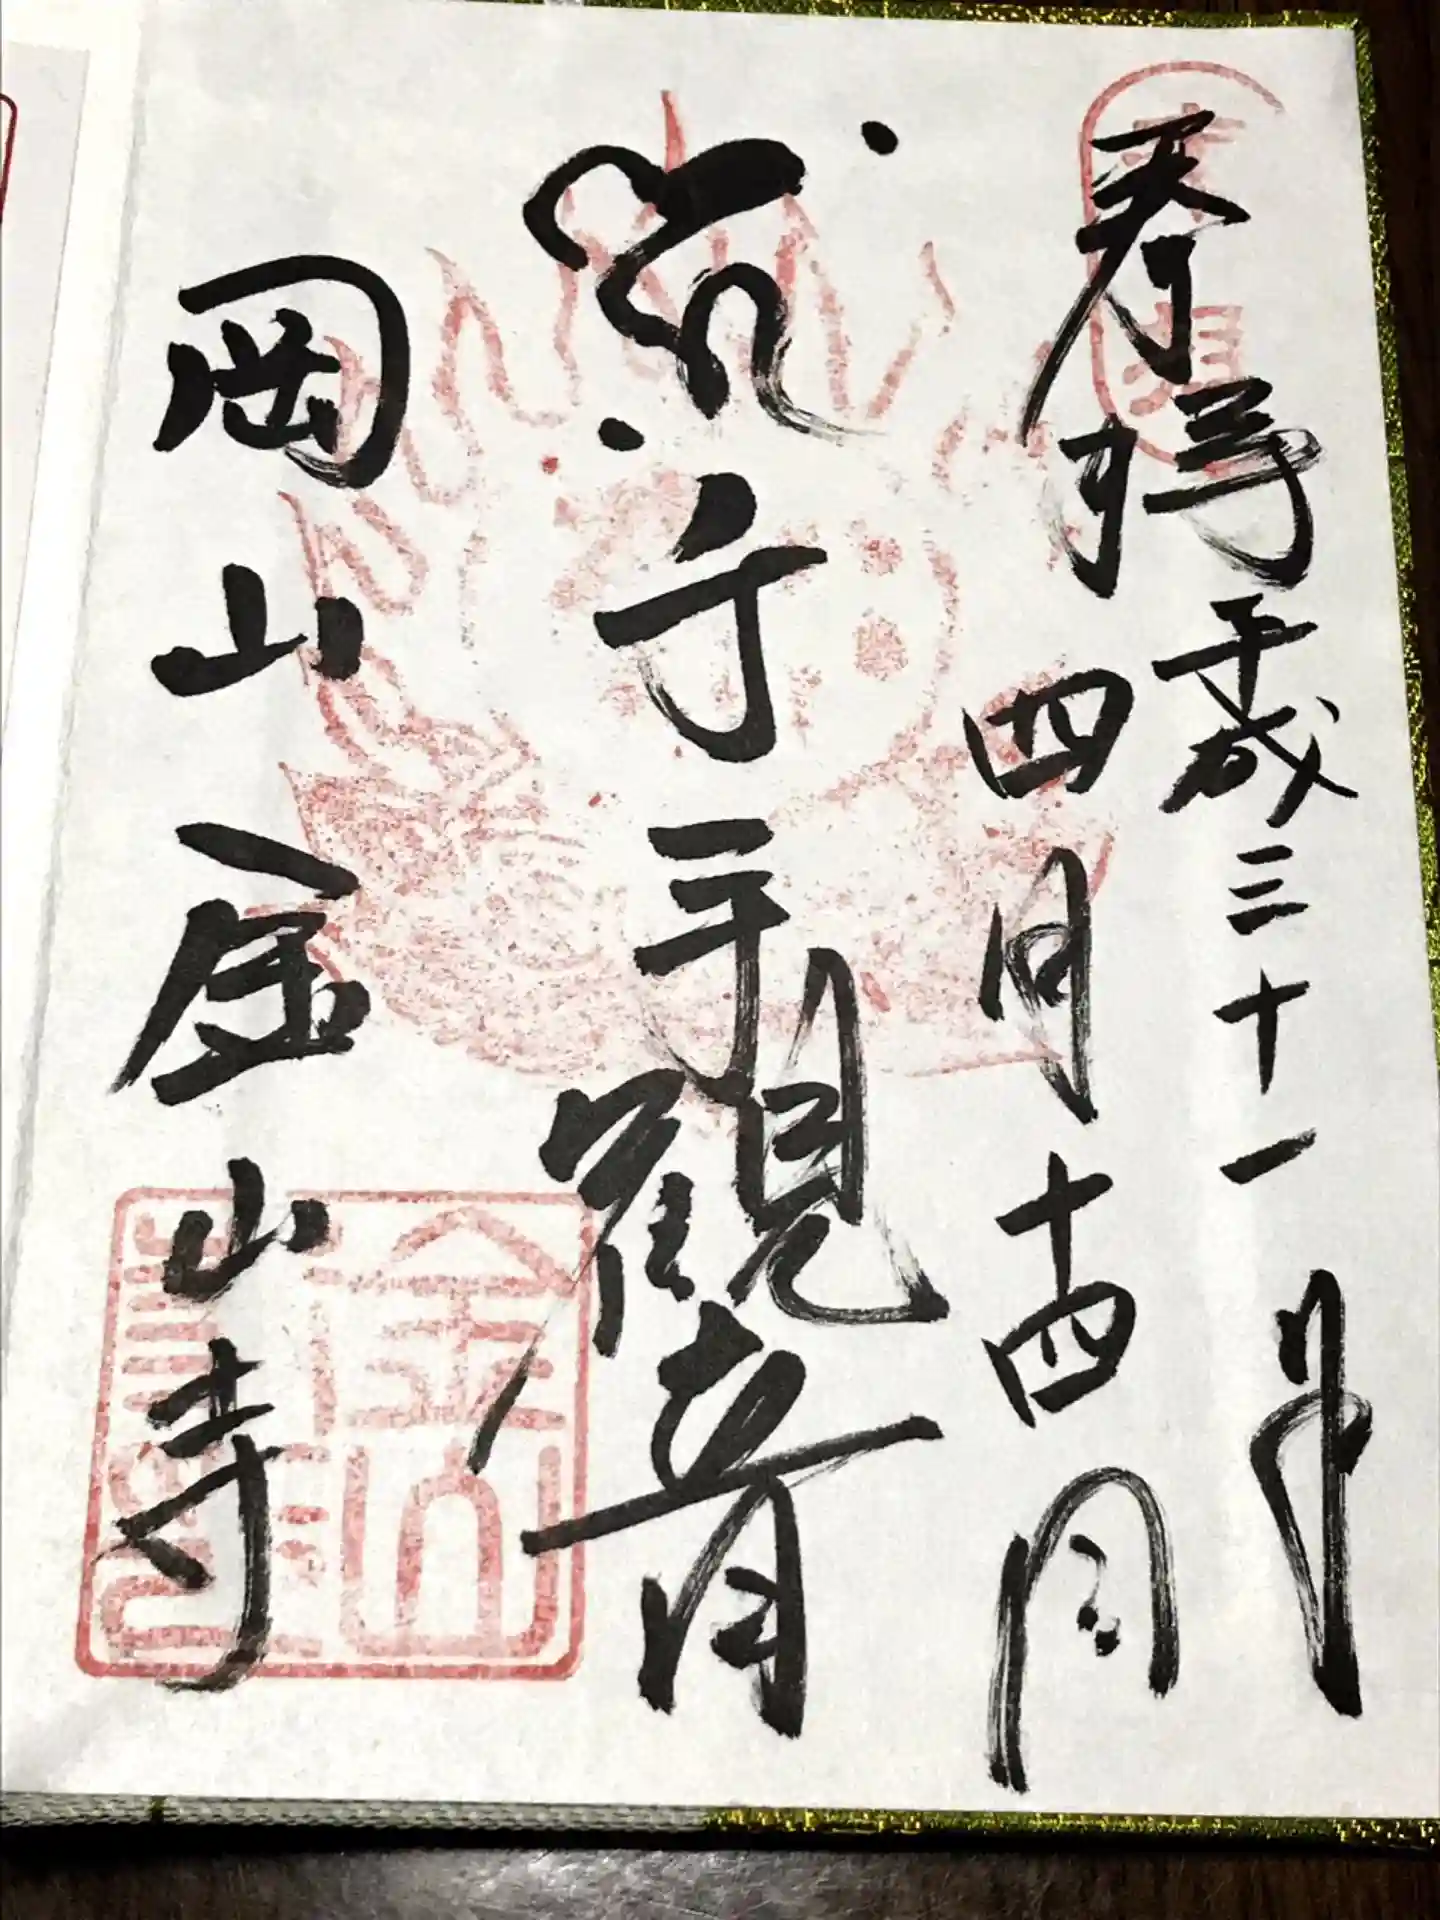 奉拝
平成三十一年
四月十四日
千手観音
岡山金山寺
金山